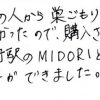 の人から巣ごもり
かったので、購入さ
野駅のMIDORIと
ができました